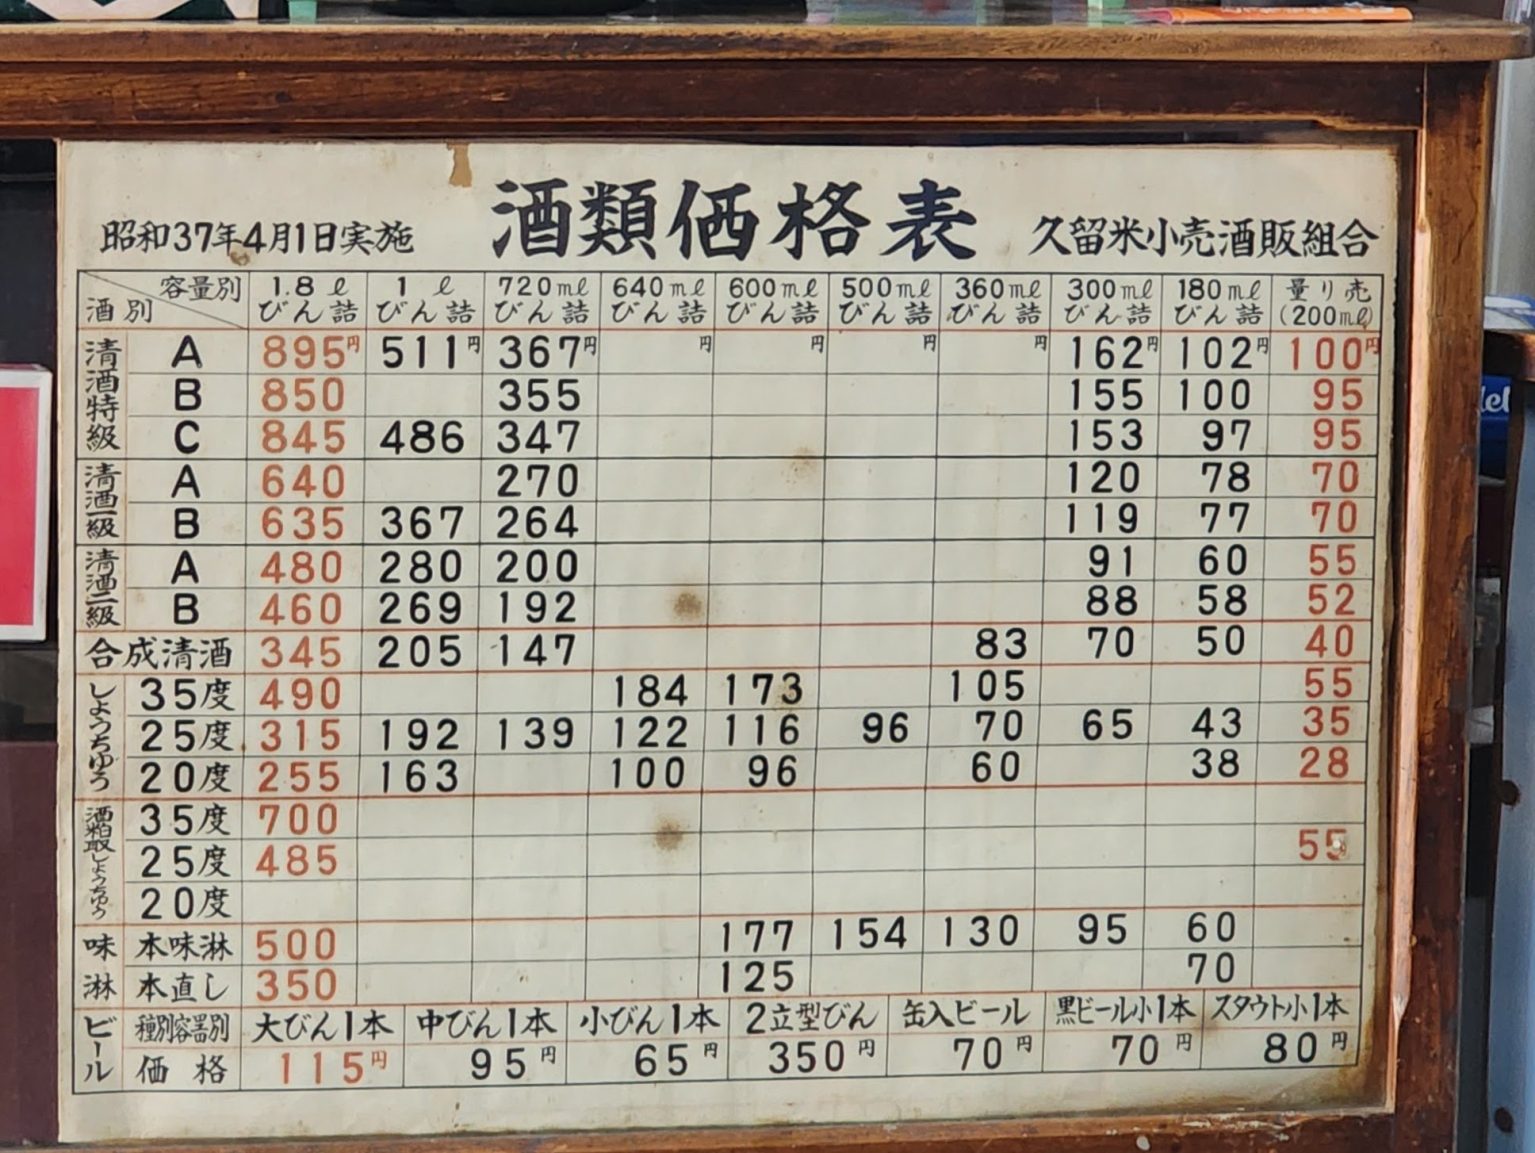 酒類価格表
昭和37年4月1日実施
久留米小売酒販組合
酒別 容量別 1.8ℓびん詰 1ℓびん詰 720mℓびん詰 640mℓびん詰 600mℓびん詰 500mℓびん詰 360mℓびん詰 300mℓびん詰 180mℓびん詰 量り売(200mℓ)
清酒特級 A 895円 511円 367円 円 円 円 円 162円 102円 100円
B 850 355 155 100 95
C 845 486 347 153 97 95
清酒一級 A 640 270 120 78 70
B 635 367 264 119 77 70
清酒二級 A 480 280 200 91 60 55
B 460 269 192 88 58 52
合成清酒 345 205 147 83 70 50 40
しょうちゅう 35度 490 184 173 105 55
25度 315 192 139 122 116 96 70 65 43 35
20度 255 163 100 96 60 38 28
酒粕取しょうちゅう 35度 700
25度 485 55
20度
味淋 本味淋 500 177 154 130 95 60
本直し 350 125 70
ビール 種別容器別 大びん1本 中びん1本 小びん1本 2立型びん 缶入ビール 黒ビール小1本 スタウト小1本
価格 115円 95円 65円 350円 70円 70円 80円